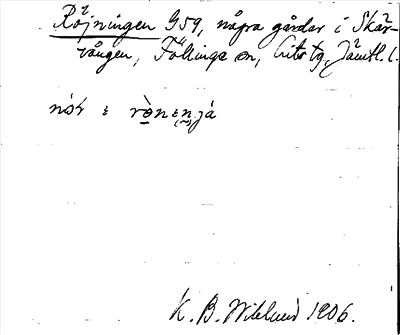 Röjningen G59, några gårdar i Skär-
vången, Föllinge sn, Lits tg, Jämtl. l.
K. B. Wiklund 1906.